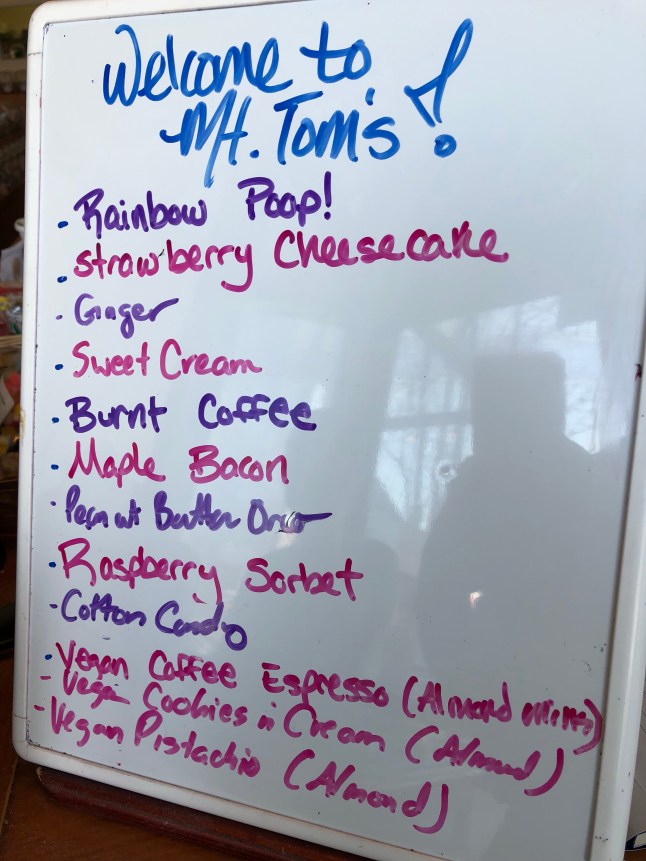 Welcome to
Mt. Tom's!
· Rainbow Poop!
· Strawberry Cheesecake
· Ginger
· Sweet Cream
· Burnt Coffee
· Maple Bacon
· Peanut Butter Oreo
· Raspberry Sorbet
- Cotton Candy
· Vegan Coffee Espresso (Almond
- Vegan Cookies n Cream (Almond)
- Vegan Pistachio (Almond)